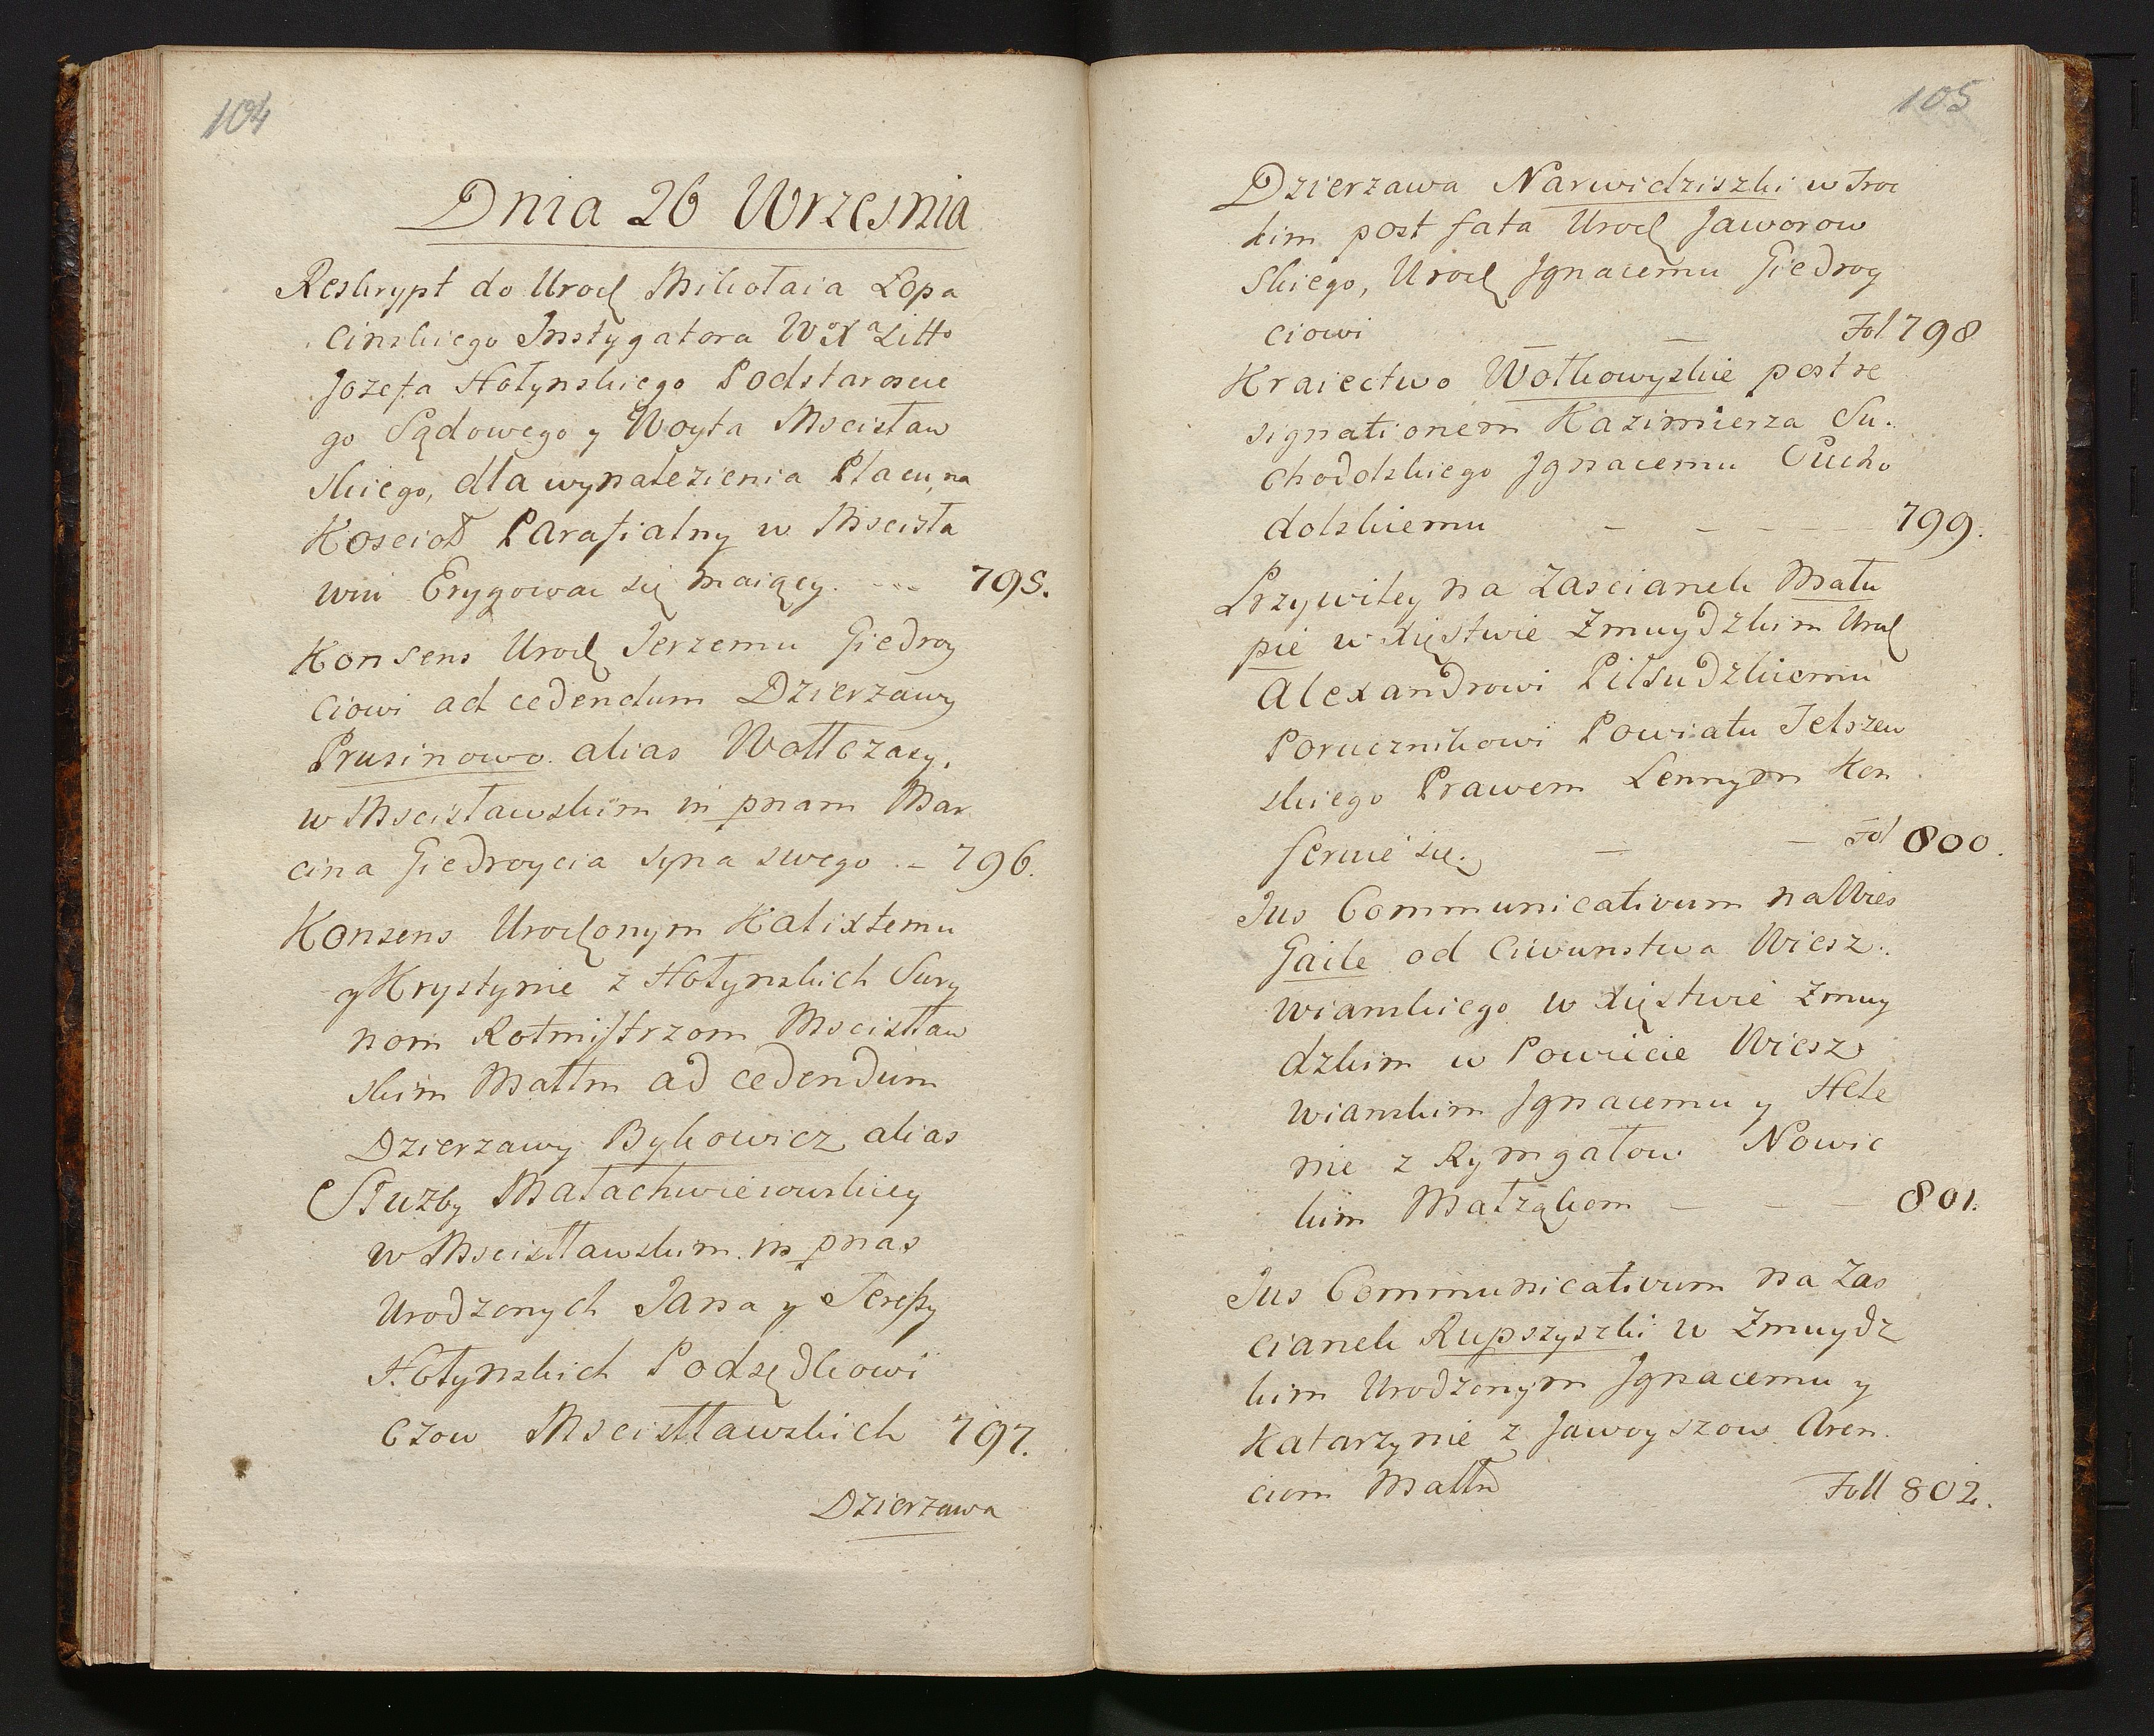 104
Dnia 26 Wrzesnia
Reskrypt do Urod Mikołaia Łopa
cinskiego Instygatora Wo Xa Litto
Jozefa Hołynskiego Podstaroscie
go Sądowego y Woyta Mscisław
skiego, dla wynalezienia Placu, na
Koscioł Parafialny w Mscisła
wiu Erygowac się maiący. - - - 795.
Konsens Urod Jerzemu Giedroy
ciowi ad cedendum Dzierzawy
Prusinowo alias Wołłczasy,
w Mscisławskim in pnam Mar
cina Giedroycia syna swego . - 796.
Konsens Urodzonym Kalixtemu
y Krystynie z Hołynskich Sury
nom Rotmistrzom Mscisław
skim Małłm ad cedendum
Dzierzawy Bykowicz alias
Służby
w Mscisławskim in pnas
Urodzonych Jana y Teressy
Hołynskich Podsędkowi
czow Mscisłławskich 797.
Dzierzawa
105
Dzierzawa Narwidziszki w Troc
kim post fata Urod Jaworow
skiego, Urod Jgnacemu Giedroy
ciowi — — Fol 798
Kraiectwo Wołkowyskie post re
signationem Kazimierza Su.
chodolskiego Jgnacemu Sucho
dolskiemu - - - - 799.
Przywiley na Zascianek Mału
pie w Xięstwie Zmuydzkim Urod
Alexandrowi Piłsudzkiemu
Porucznikowi Powiatu Telszew
skiego Prawem Lennym Kon
feruie się. — — Fol 800.
Jus Communicativum na Wies
Gaile od Ciwunstwa Wiesz.
wianskiego w Xięstwie Zmuy
dzkim w Powiecie Wiesz
wianskim Jgnacemu y Hele
nie z Rymgałow Nowic
kim Małząkom — — — 801.
Jus Communicativum na Zas
cianek Rupszyszki w Zmuydz
kim Urodzonym Jgnacemu y
Katarzynie z Jawoyszow Aren.
ciom Małłn Foll 802.